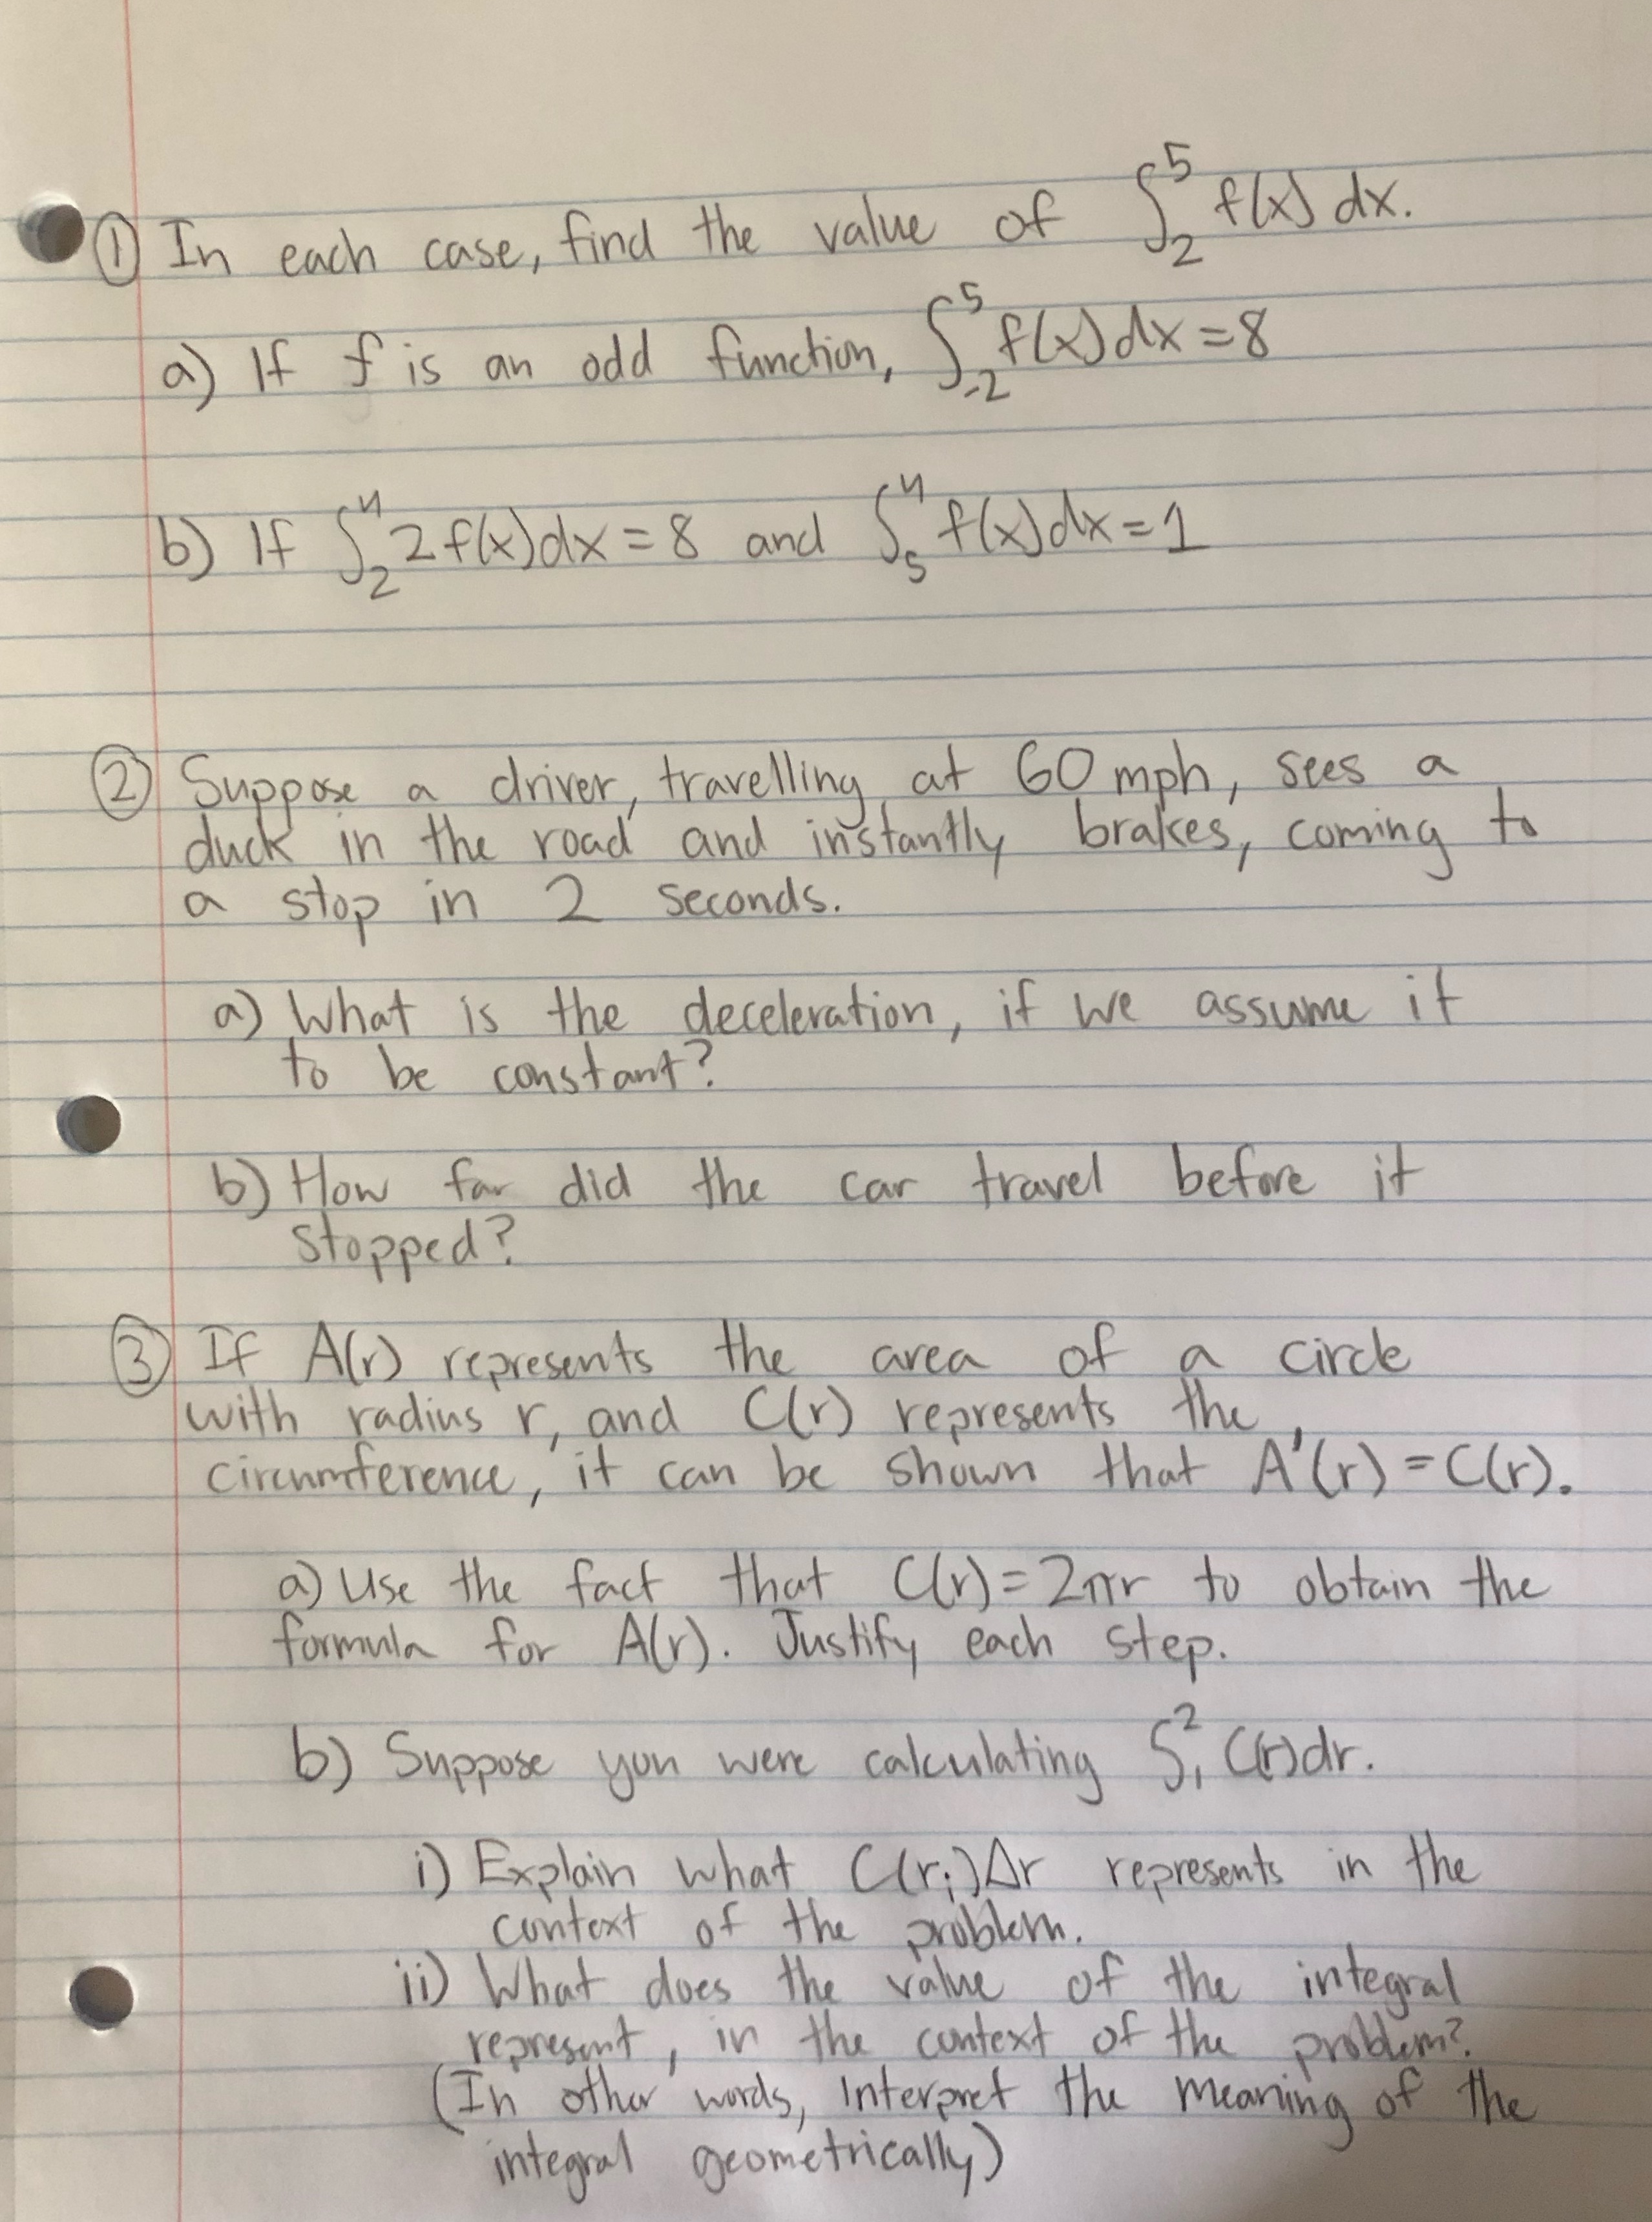 ① In each case, find the value of ∫₂⁵ f(x) dx.
a) If f is an odd function, ∫₋₂⁵ f(x) dx = 8
b) If ∫₂⁴ 2f(x) dx = 8 and ∫₅⁴ f(x) dx = 1
② Suppose a driver, travelling at 60 mph, sees a
duck in the road and instantly brakes, coming to
a stop in 2 seconds.
a) What is the deceleration, if we assume it
to be constant?
b) How far did the car travel before it
stopped?
③ If A(r) represents the area of a circle
with radius r, and C(r) represents the
circumference, it can be shown that A'(r) = C(r).
a) Use the fact that C(r) = 2πr to obtain the
formula for A(r). Justify each step.
b) Suppose you were calculating ∫₁² C(r) dr.
i) Explain what C(rᵢ)Δr represents in the
context of the problem.
ii) What does the value of the integral
represent, in the context of the problem?
(In other words, interpret the meaning of the
integral geometrically)